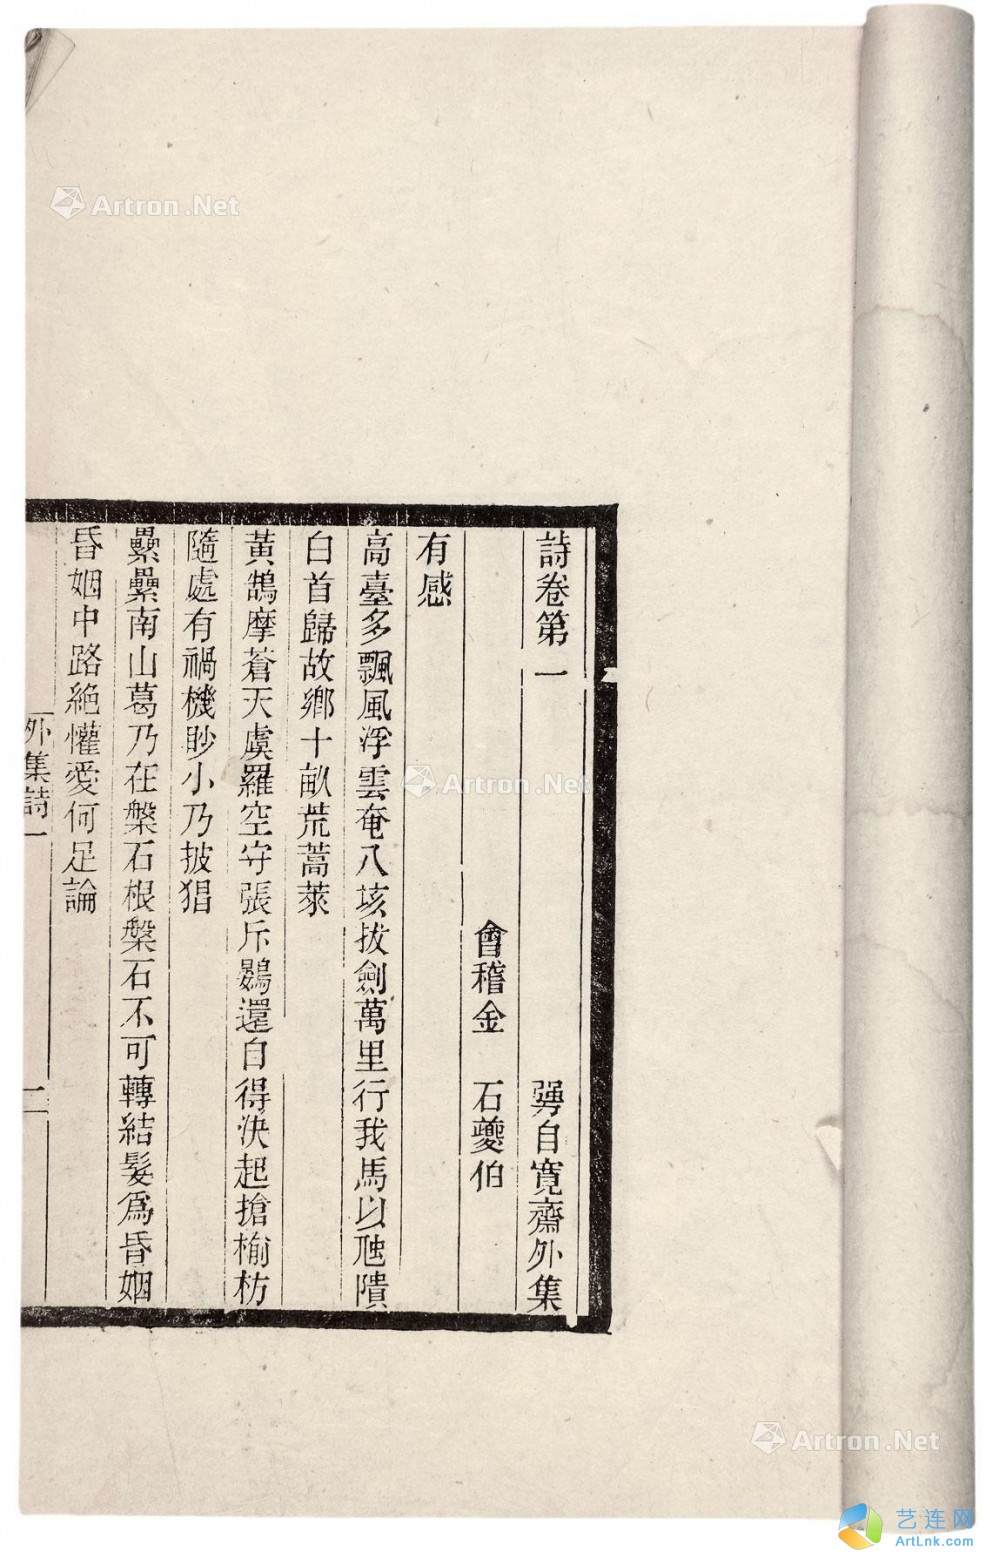 詩卷第一　自寬齋外集
會稽金　石夔伯
有感
高臺多飄風浮雲奄八垓拔劍萬里行我馬以虺隤
白首歸故鄉十畝荒蒿萊
黃鵠摩蒼天虞羅空守張斥鷃還自得決起搶榆枋
隨處有禍機眇小乃披猖
纍纍南山葛乃在槃石根槃石不可轉結髮爲昏姻
昏姻中路絕懽愛何足論
外集詩一
Artron.Net
Artron.Net
Artron.Net
艺连网
ArtLnk.com